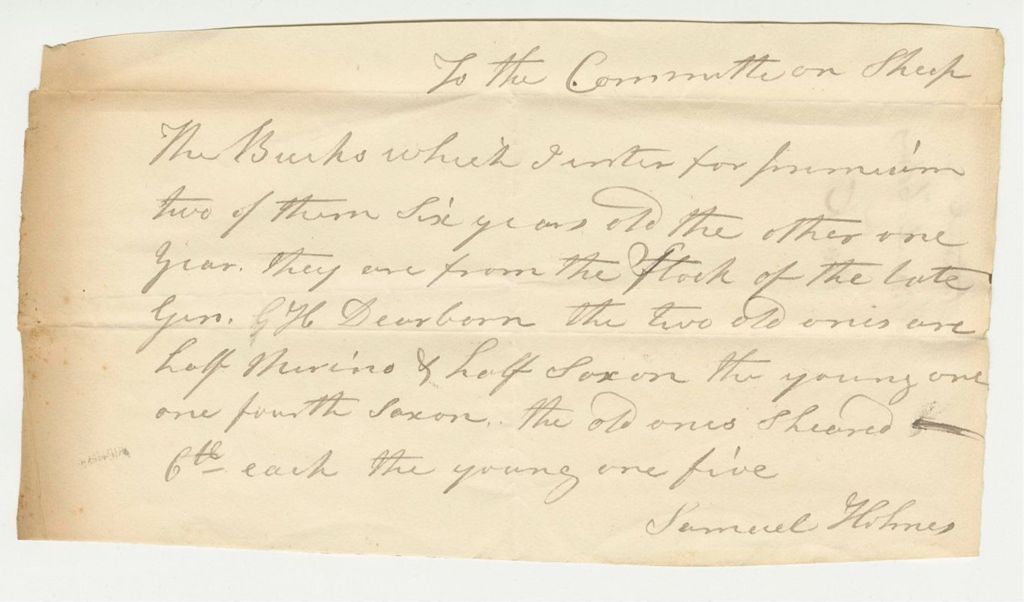 To the Committe on Sheep
The Bucks which I enter for premium
two of them Six years old the other one
Year. they are from the flock of the late
Gen. G H Dearborn the two old ones are
half Merino & half Saxon the young one
one fourth Saxon. the old ones Sheared
6 lb each the young one five
Samuel Holmes